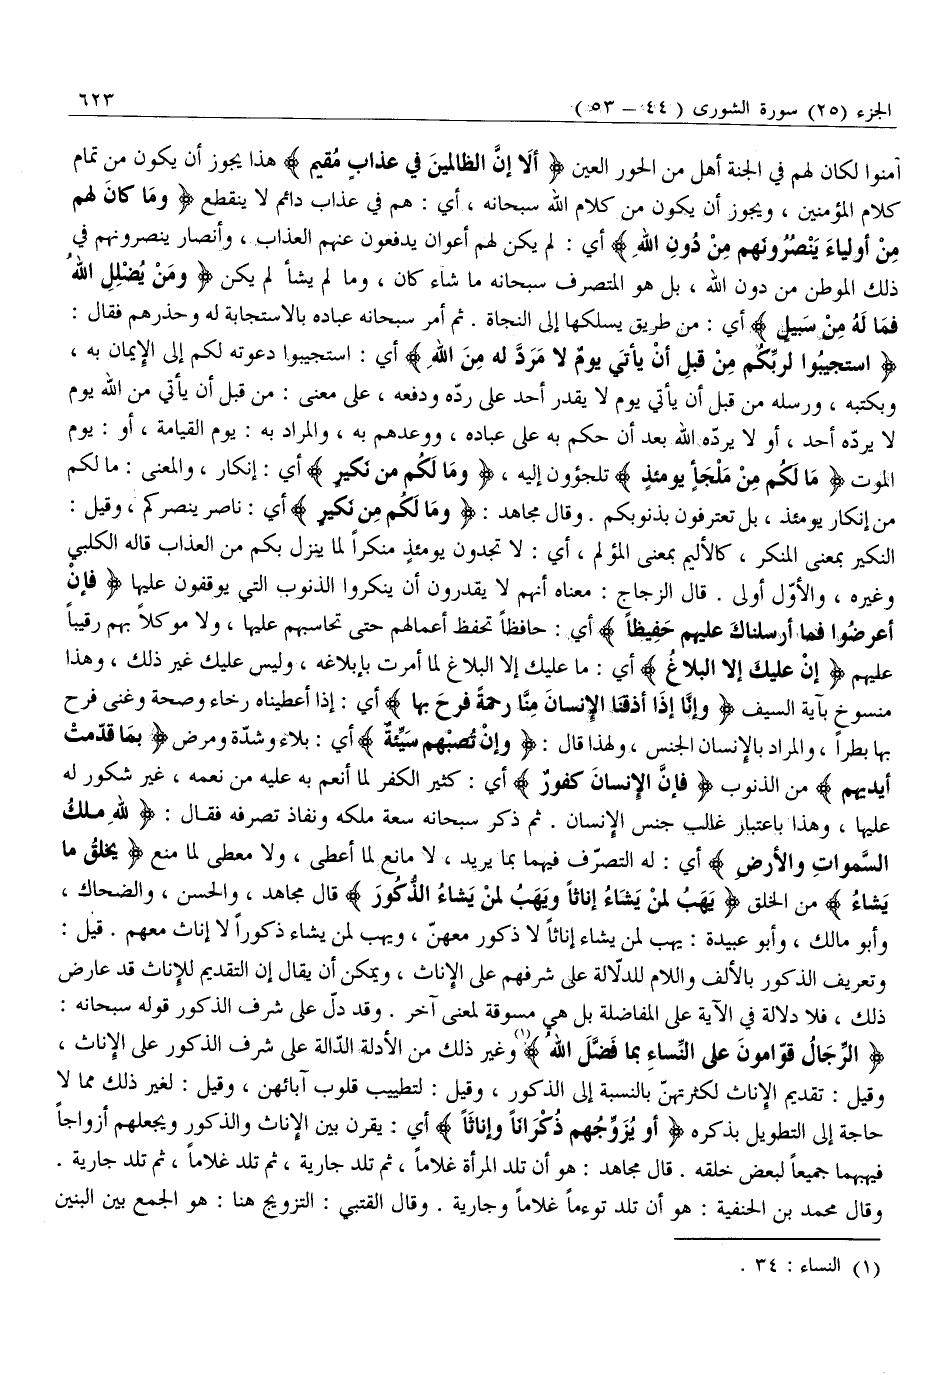 الجزء (٢٥) سورة الشورى ( ٤٤ – ٥٣ )
٦٢٣
آمنوا لكان لهم في الجنة أهل من الحور العين ﴿ ألَا إنَّ الظالمينَ في عذابٍ مُقيمٍ ﴾ هذا يجوز أن يكون من تمام
كلام المؤمنين ، ويجوز أن يكون من كلام الله سبحانه ، أي : هم في عذاب دائم لا ينقطع ﴿ ومَا كانَ لهم
مِنْ أولياءَ يَنْصُرُونَهم مِنْ دُونِ اللهِ ﴾ أي : لم يكن لهم أعوان يدفعون عنهم العذاب ، وأنصار ينصرونهم في
ذلك الموطن من دون الله ، بل هو المتصرف سبحانه ما شاء كان ، وما لم يشأ لم يكن ﴿ ومَنْ يُضْلِلِ اللهُ
فمَا لَهُ مِنْ سَبيلٍ ﴾ أي : من طريق يسلكها إلى النجاة . ثم أمر سبحانه عباده بالاستجابة له وحذرهم فقال :
﴿ استجيبُوا لربِّكُم مِنْ قبلِ أنْ يأتيَ يومٌ لا مَرَدَّ له مِنَ اللهِ ﴾ أي : استجيبوا دعوته لكم إلى الإيمان به ،
وبكتبه ، ورسله من قبل أن يأتي يوم لا يقدر أحد على ردّه ودفعه ، على معنى : من قبل أن يأتي من الله يوم
لا يردّه أحد ، أو لا يردّه الله بعد أن حكم به على عباده ، ووعدهم به ، والمراد به : يوم القيامة ، أو : يوم
الموت ﴿ مَا لَكُم مِنْ مَلْجَأٍ يومئذٍ ﴾ تلجؤون إليه ، ﴿ ومَا لَكُم من نَكيرٍ ﴾ أي : إنكار ، والمعنى : ما لكم
من إنكار يومئذ ، بل تعترفون بذنوبكم . وقال مجاهد : ﴿ ومَا لَكُم مِن نَكيرٍ ﴾ أي : ناصر ينصركم ، وقيل :
النكير بمعنى المنكر ، كالأليم بمعنى المؤلم ، أي : لا تجدون يومئذٍ منكراً لما ينزل بكم من العذاب قاله الكلبي
وغيره ، والأوّل أولى . قال الزجاج : معناه أنهم لا يقدرون أن ينكروا الذنوب التي يوقفون عليها ﴿ فإنْ
أعرضُوا فما أرسلناكَ عليهم حَفِيظاً ﴾ أي : حافظاً تحفظ أعمالهم حتى تحاسبهم عليها ، ولا موكلاً بهم رقيباً
عليهم ﴿ إنْ عليكَ إلا البلاغُ ﴾ أي : ما عليك إلا البلاغ لما أمرت بإبلاغه ، وليس عليك غير ذلك ، وهذا
منسوخ بآية السيف ﴿ وإنَّا إذَا أذقنَا الإنسانَ مِنَّا رحمةً فَرِحَ بها ﴾ أي : إذا أعطيناه رخاء وصحة وغنى فرح
بها بطراً ، والمراد بالإنسان الجنس ، ولهذا قال : ﴿ وإنْ تُصبْهم سَيِّئةٌ ﴾ أي : بلاء وشدّة ومرض ﴿ بمَا قدّمتْ
أيديهم ﴾ من الذنوب ﴿ فإنَّ الإنسانَ كفورٌ ﴾ أي : كثير الكفر لما أنعم به عليه من نعمه ، غير شكور له
عليها ، وهذا باعتبار غالب جنس الإنسان . ثم ذكر سبحانه سعة ملكه ونفاذ تصرفه فقال : ﴿ للهِ ملكُ
السَّمواتِ والأرضِ ﴾ أي : له التصرّف فيهما بما يريد ، لا مانع لما أعطى ، ولا معطي لما منع ﴿ يخلقُ ما
يَشاءُ ﴾ من الخلق ﴿ يَهَبُ لمنْ يَشاءُ إناثاً ويَهَبُ لمنْ يَشاءُ الذُّكورَ ﴾ قال مجاهد ، والحسن ، والضحاك ،
وأبو مالك ، وأبو عبيدة : يهب لمن يشاء إناثاً لا ذكور معهنّ ، ويهب لمن يشاء ذكوراً لا إناث معهم . قيل :
وتعريف الذكور بالألف واللام للدّلالة على شرفهم على الإناث ، ويمكن أن يقال إن التقديم للإناث قد عارض
ذلك ، فلا دلالة في الآية على المفاضلة بل هي مسوقة لمعنى آخر . وقد دلّ على شرف الذكور قوله سبحانه :
﴿ الرِّجالُ قوّامونَ على النِّساءِ بما فَضَّلَ اللهُ ﴾(١) وغير ذلك من الأدلة الدّالة على شرف الذكور على الإناث ،
وقيل : تقديم الإناث لكثرتهنّ بالنسبة إلى الذكور ، وقيل : لتطييب قلوب آبائهن ، وقيل : لغير ذلك مما لا
حاجة إلى التطويل بذكره ﴿ أو يُزَوِّجُهم ذُكْرَاناً وإناثاً ﴾ أي : يقرن بين الإناث والذكور ويجعلهم أزواجاً
فيهبهما جميعاً لبعض خلقه . قال مجاهد : هو أن تلد المرأة غلاماً ، ثم تلد جارية ، ثم تلد غلاماً ، ثم تلد جارية .
وقال محمد بن الحنفية : هو أن تلد توءماً غلاماً وجارية . وقال القتبي : التزويج هنا : هو الجمع بين البنين
(١) النساء : ٣٤ .